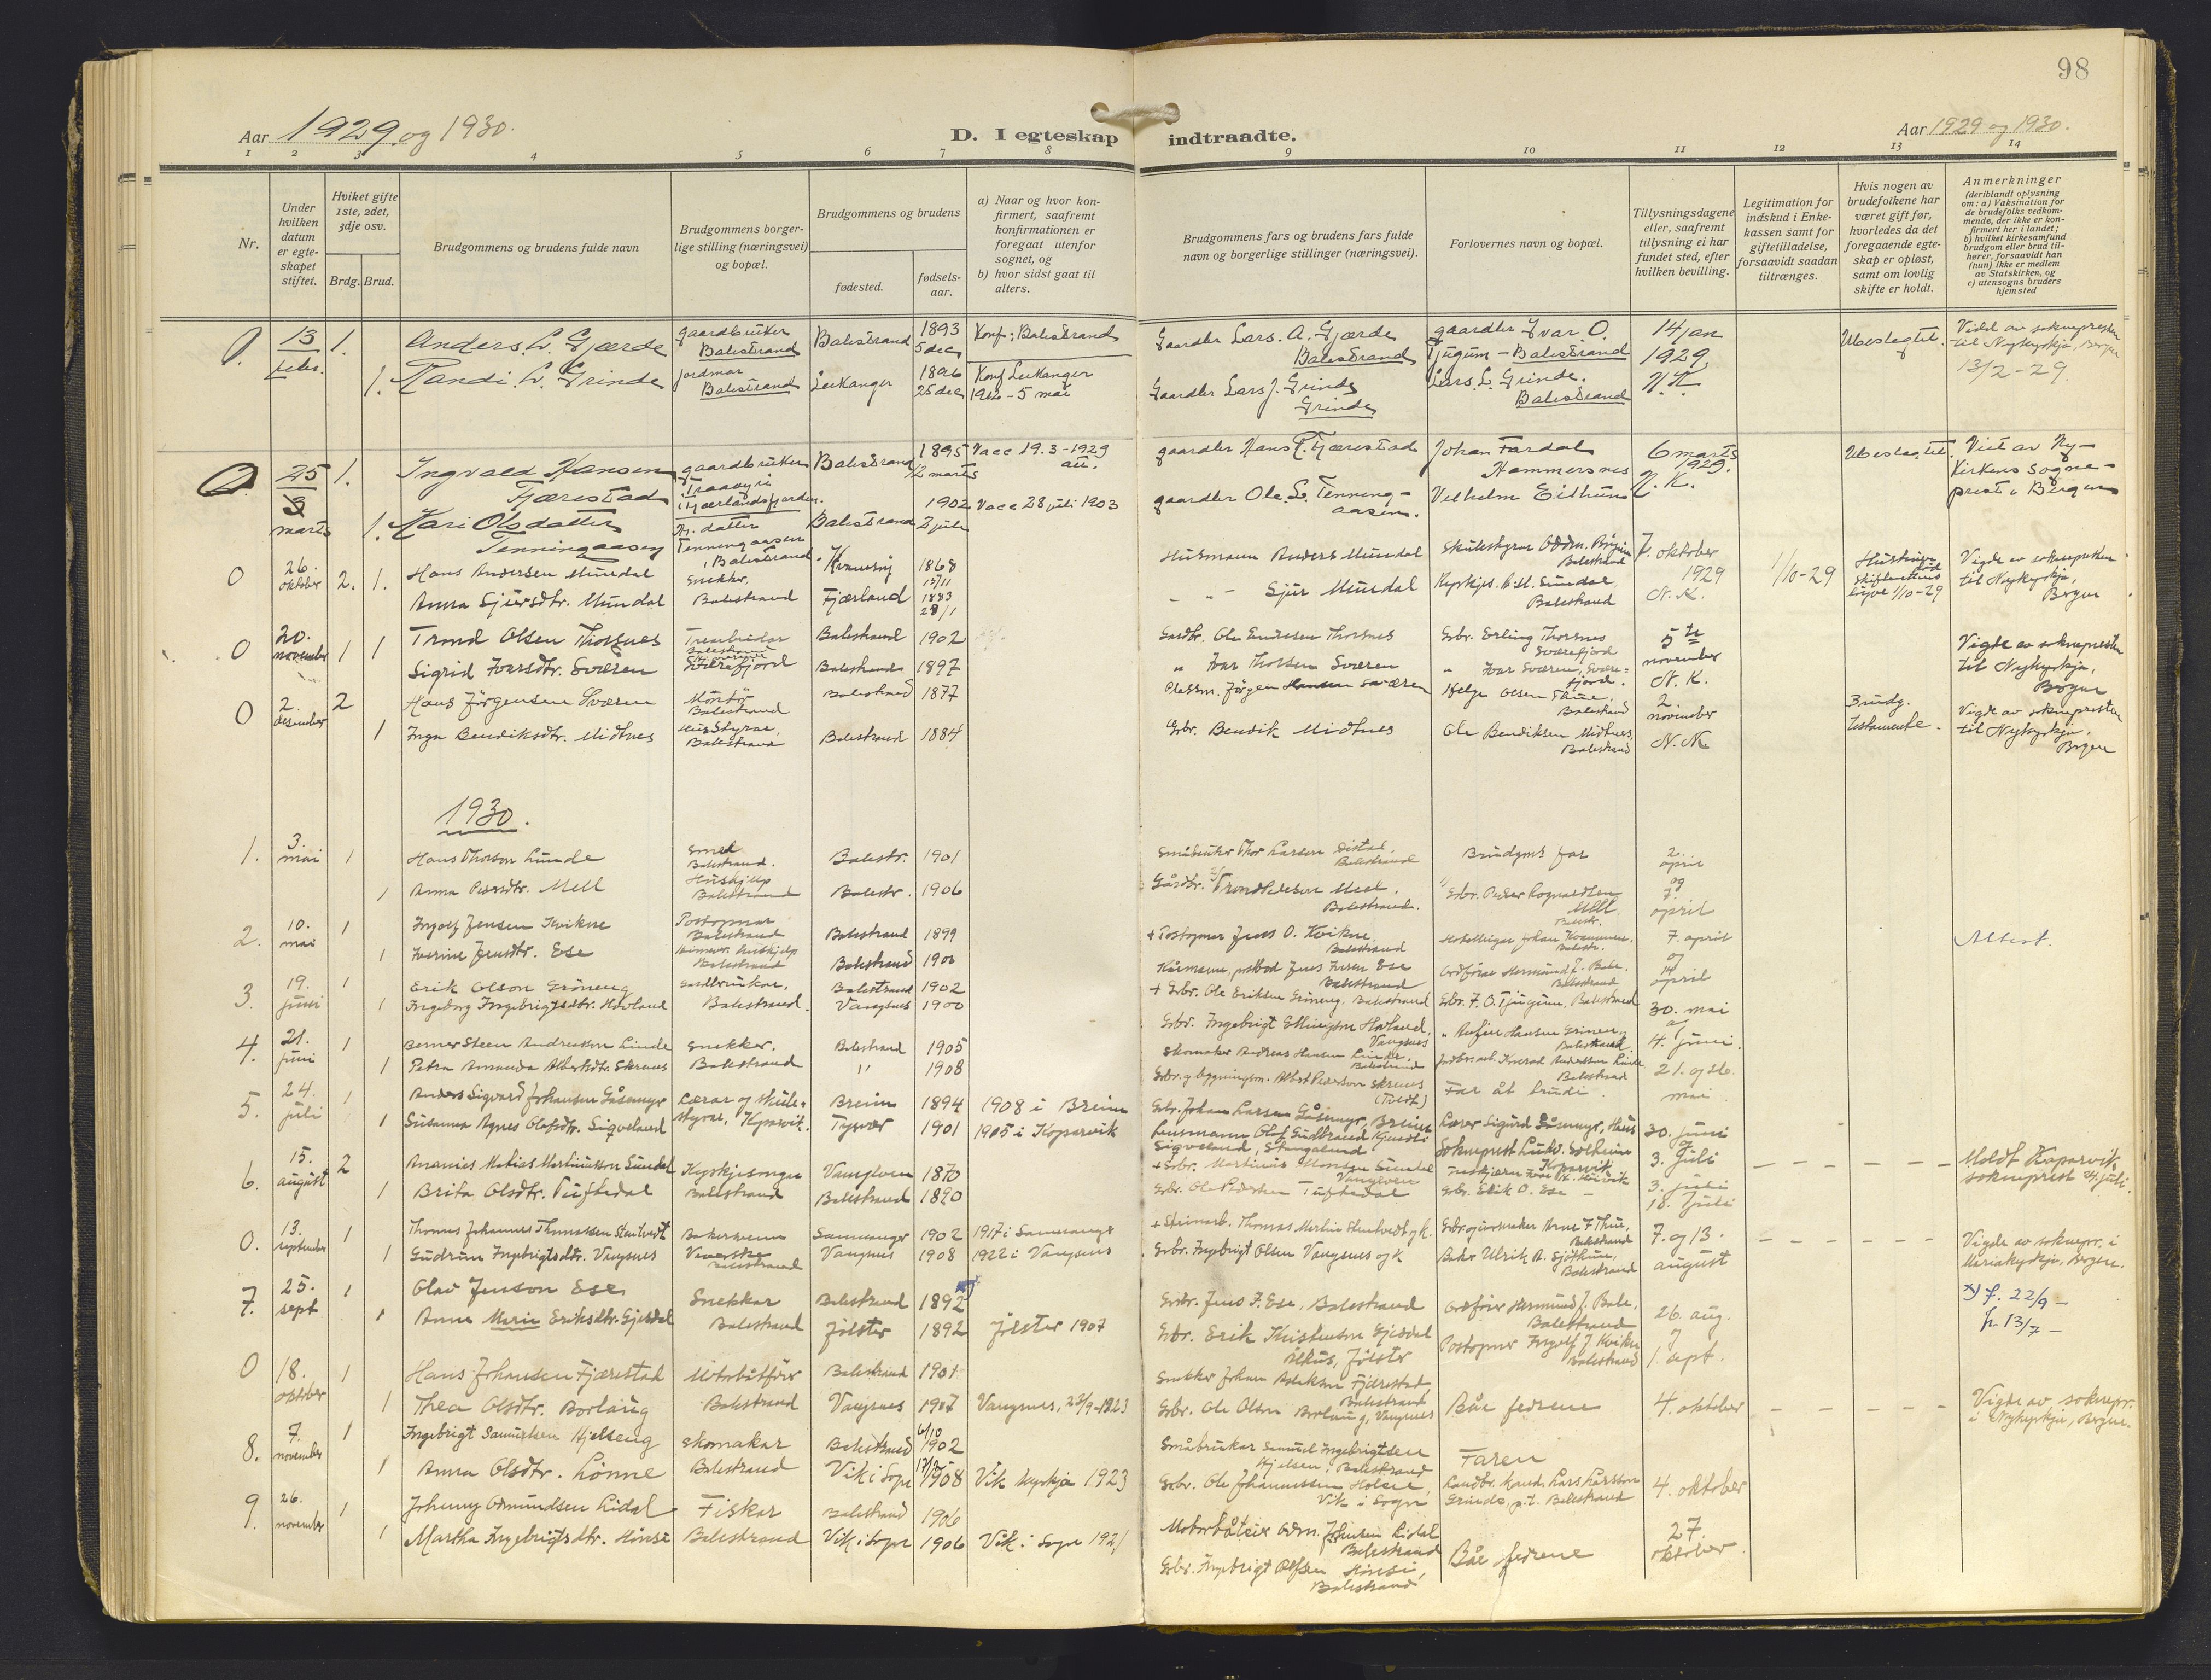 98
Aar 1929 og 1930.
D. I egteskap indtraadte.
Aar 1929 og 1930.
1 2 3 4 5 6 7 8 9 10 11 12 13 14
Nr.
Under hvilken datum er egteskapet stiftet.
Hviket gifte 1ste, 2det, 3dje osv.
Brdg. Brud.
Brudgommens og brudens fulde navn
Brudgommens borgerlige stilling (næringsvei) og bopæl.
Brudgommens og brudens
fødested.
fødselsaar.
a) Naar og hvor konfirmert, saafremt konfirmationen er foregaat utenfor sognet, og
b) hvor sidst gaat til alters.
Brudgommens fars og brudens fars fulde navn og borgerlige stillinger (næringsvei).
Forlovernes navn og bopæl.
Tillysningsdagene eller, saafremt tillysning ei har fundet sted, efter hvilken bevilling.
Legitimation for indskud i Enkekassen samt for giftetilladelse, forsaavidt saadan tiltrænges.
Hvis nogen av brudefolkene har været gift før, hvorledes da det foregaaende egteskap er opløst, samt om lovlig skifte er holdt.
Anmerkninger
(deriblandt oplysning om: a) Vaksination for de brudefolks vedkommende, der ikke er konfirmert her i landet;
b) hvilket kirkesamfund brudgom eller brud tilhører, forsaavidt han (hun) ikke er medlem av Statskirken, og
c) utensogns bruders hjemsted
0. 13 febr. 1. Anders L. Gjærde gaardbruker Balestrand Balestrand 1893 5 dec Konf: Balestrand Gaardbr Lars. A. Gjærde Balestrand gaardbr Ivar O. Tjugum - Balestrand 14 jan 1929 N.K. Ubeslegtet. Viet av soknepresten til Nykyrkja, Bergen 13/2-29
1. Randi L. Grinde jordmor Balestrand Leikanger 1896 25 dec Konf Leikanger 1912 - 5 mai Gaardbr Lars J. Grinde Grinde Lars. L. Grinde. Balestrand
0. 25 marts 1. Ingvald Hansen Fjærestad gaardbruker Balestrand 1895 12 marts Vacc 19.3-1929 gaardbr Hans Fjærestad Johan Fardal Hammersnes 6 marts 1929. N.K. Ubeslegtet. Viet av Nykirkens sogneprest i Bergen
1. Kari Olsdatter Tenningaasen datter Tenningaasen i Balestrand Balestrand 1902 2 juli Vacc 28 juli 1903 gaardbr Ole. L. Tenningaasen. Vilhelm Eithun
0 26. oktober 2. 1. Hans Andersen Mundal Snekker, Balestrand 1868 Husmann Anders Mundal Balestrand 7. oktober 1929 N.K. 1/10-29 Vigde av soknepresten til Nykyrkja, Bergen
Anna Sjursdtr. Mundal Fjærland 1883 28/1 Sjur Mundal Sundal Balestrand
0 20. november 1 1 Trond Olsen Thorsnes Balestrand 1902 Gardbr. Ole Endresen Thorsnes Gbr. Erling Thorsnes Sværefjord 5te november N.K. Vigde av soknepresten til Nykyrkja, Bergen
Sigrid Ivarsdtr. Sværen Sværefjord Balestrand 1897 " Ivar Thorsen Sværen " Ivar Sværen, Sværefjord.
0 2. desember 2 Hans Jörgensen Sværen Montör Balestrand Balestrand 1877 Jörgen Hansen Sværen Helge Olsen Thue. Balestrand 2. november N.K. Brudg. Vigde av soknepresten til Nykyrkja, Bergen
1 Inga Bendiksdtr. Midtnes Husstyrar, Balestrand Balestrand 1884 Gbr. Bendik Midtnes Ole Bendiksen Midtnes, Balestrand
1930.
1. 3. mai 1 Hans Thorson Lunde Smed Balestrand. Balestr. 1901 Thor Larsen Balestrand Brudgms far 2. april og 7. april
1 Anna Pedersdtr. Mell Hushjelp Balestrand Balestr. 1906 Gardbr. Trond Pederson Mell. Balestrand. Gbr. Peder Rognaldsen Mell
2. 10. mai 1 Ingolf Jensen Kvikne Postopnar Balestrand Balestrand 1899 + Postopnar Jens O. Kvikne Balestrand 7. april og 14 april
1 Iverine Jensdtr. Ese Balestrand Balestrand 1900 Jens Iversen Ese Balestrand Ordförar Hermund J. Bale. Balestrand
3. 19. juni 1 Erik Olson Gröneng Gardbrukar. Balestrand 1902 + Gbr. Ole Eriksen Gröneng. Balestrand Gbr. F. O. Tjugum, Balestrand 30. mai og 4. juni.
1 Ingeborg Ingebrigtsdtr. Hovland Balestrand. Vangsnes 1900 Gbr. Ingebrigt Ellingson Hovland, Vangsnes
4. 21. juni 1 Berner Steen Andreasson Linde Snekker. Balestrand 1905 Skomaker Andreas Hansen Linde. Balestrand 21. og 26. mai
1 Petra Amanda Albertsdtr. Skrenes Balestrand " 1908 Far åt brudi.
5. 24. juli 1 Anders Sigvard Johansen Gåsemyr Lærar og Breim 1894 1908 i Breim Gbr. Johan Larsen Gåsemyr, Breim Lærer Sigurd Gåsemyr, 30. juni og 3. juli
1 Susanna Agnes Olafsdtr. Sigveland Tysvær 1901 1905 i Kopervik Lensmann Olaf Gudbrand Sigveland, Stangeland Sokneprest
6. 15. august 2 Ananias Matias Martinusson Sundal Kyrkjesongar Vanylven 1870 + Gbr. Martinus Monsen Sundal Vanylven 3. juli
1 Brita Olsdtr. Tuftedal Balestrand Balestrand 1890 Gbr. Ole Pedersen Tuftedal Gbr. Erik O. Ese 18. juli
0. 13. september 1 Thomas Johannes Thomassen Stentvedt Bakersvenn Samnanger 1902 1917 i Samnanger + Steinarb. Thomas Martin Stentvedt og k. 7. og 13. august Vigde av soknepr. i Mariakyrkja, Bergen.
1 Gudrun Ingebrigtsdtr. Vangsnes Balestrand Vangsnes 1908 1922 i Vangsnes Gbr. Ingebrigt Olsen Vangsnes og k Baker Ulrik A. Sjöthun, Balestrand
7. 25. sept 1 Olav Jenson Ese Snekkar Balestrand 1892 Gbr. Jens I. Ese, Balestrand Ordförer Hermund J. Bale, Balestrand 26. aug. og 1. sept. x) f. 22/9 - f. 13/7 -
1 Anna Marie Eriksdtr. Gjesdal Balestrand Jölster 1892 Jölster 1907 Gbr. Erik Kristenson Gjesdal Ålhus, Jölster Postopner Ingolf J. Kvikne Balestrand
0 18. oktober 1 Hans Johansen Fjærestad Motorbåtförer Balestrand 1901 Snekker Johan Fjærestad, Balestrand Båe fedrene 4. oktober Vigde av soknepr. i Nykyrkja, Bergen.
1 Thea Olsdtr. Borlaug Balestrand Vangsnes 1907 Vangsnes, 23/9-1923 Gbr. Ole Olsen Borlaug, Vangsnes
8. 7. november 1 Ingebrigt Samuelsen Hjelseng Skomakar Balestrand 6/10 1902 Småbrukar Samuel Ingebrigtsen Balestrand Faren 4. oktober
1 Anna Olsdtr. Lönne Balestrand Vik i Sogn 1908 Vik kyrkja 1923 Gbr. Ole Johannessen Vik i Sogn Landbr. kand. Lars Larsson Grinde, p.t. Balestrand
9. 26. november 1 Johnny Odmundsen Lidal Fiskar Balestrand 1906 Lidal Balestrand Båe fedrene 27. oktober.
1 Martha Ingebrigtsdtr. Hönsi Balestrand Vik i Sogn 1906 Vik i Sogn 1921 Gbr. Ingebrigt Hönsi, Balestrand